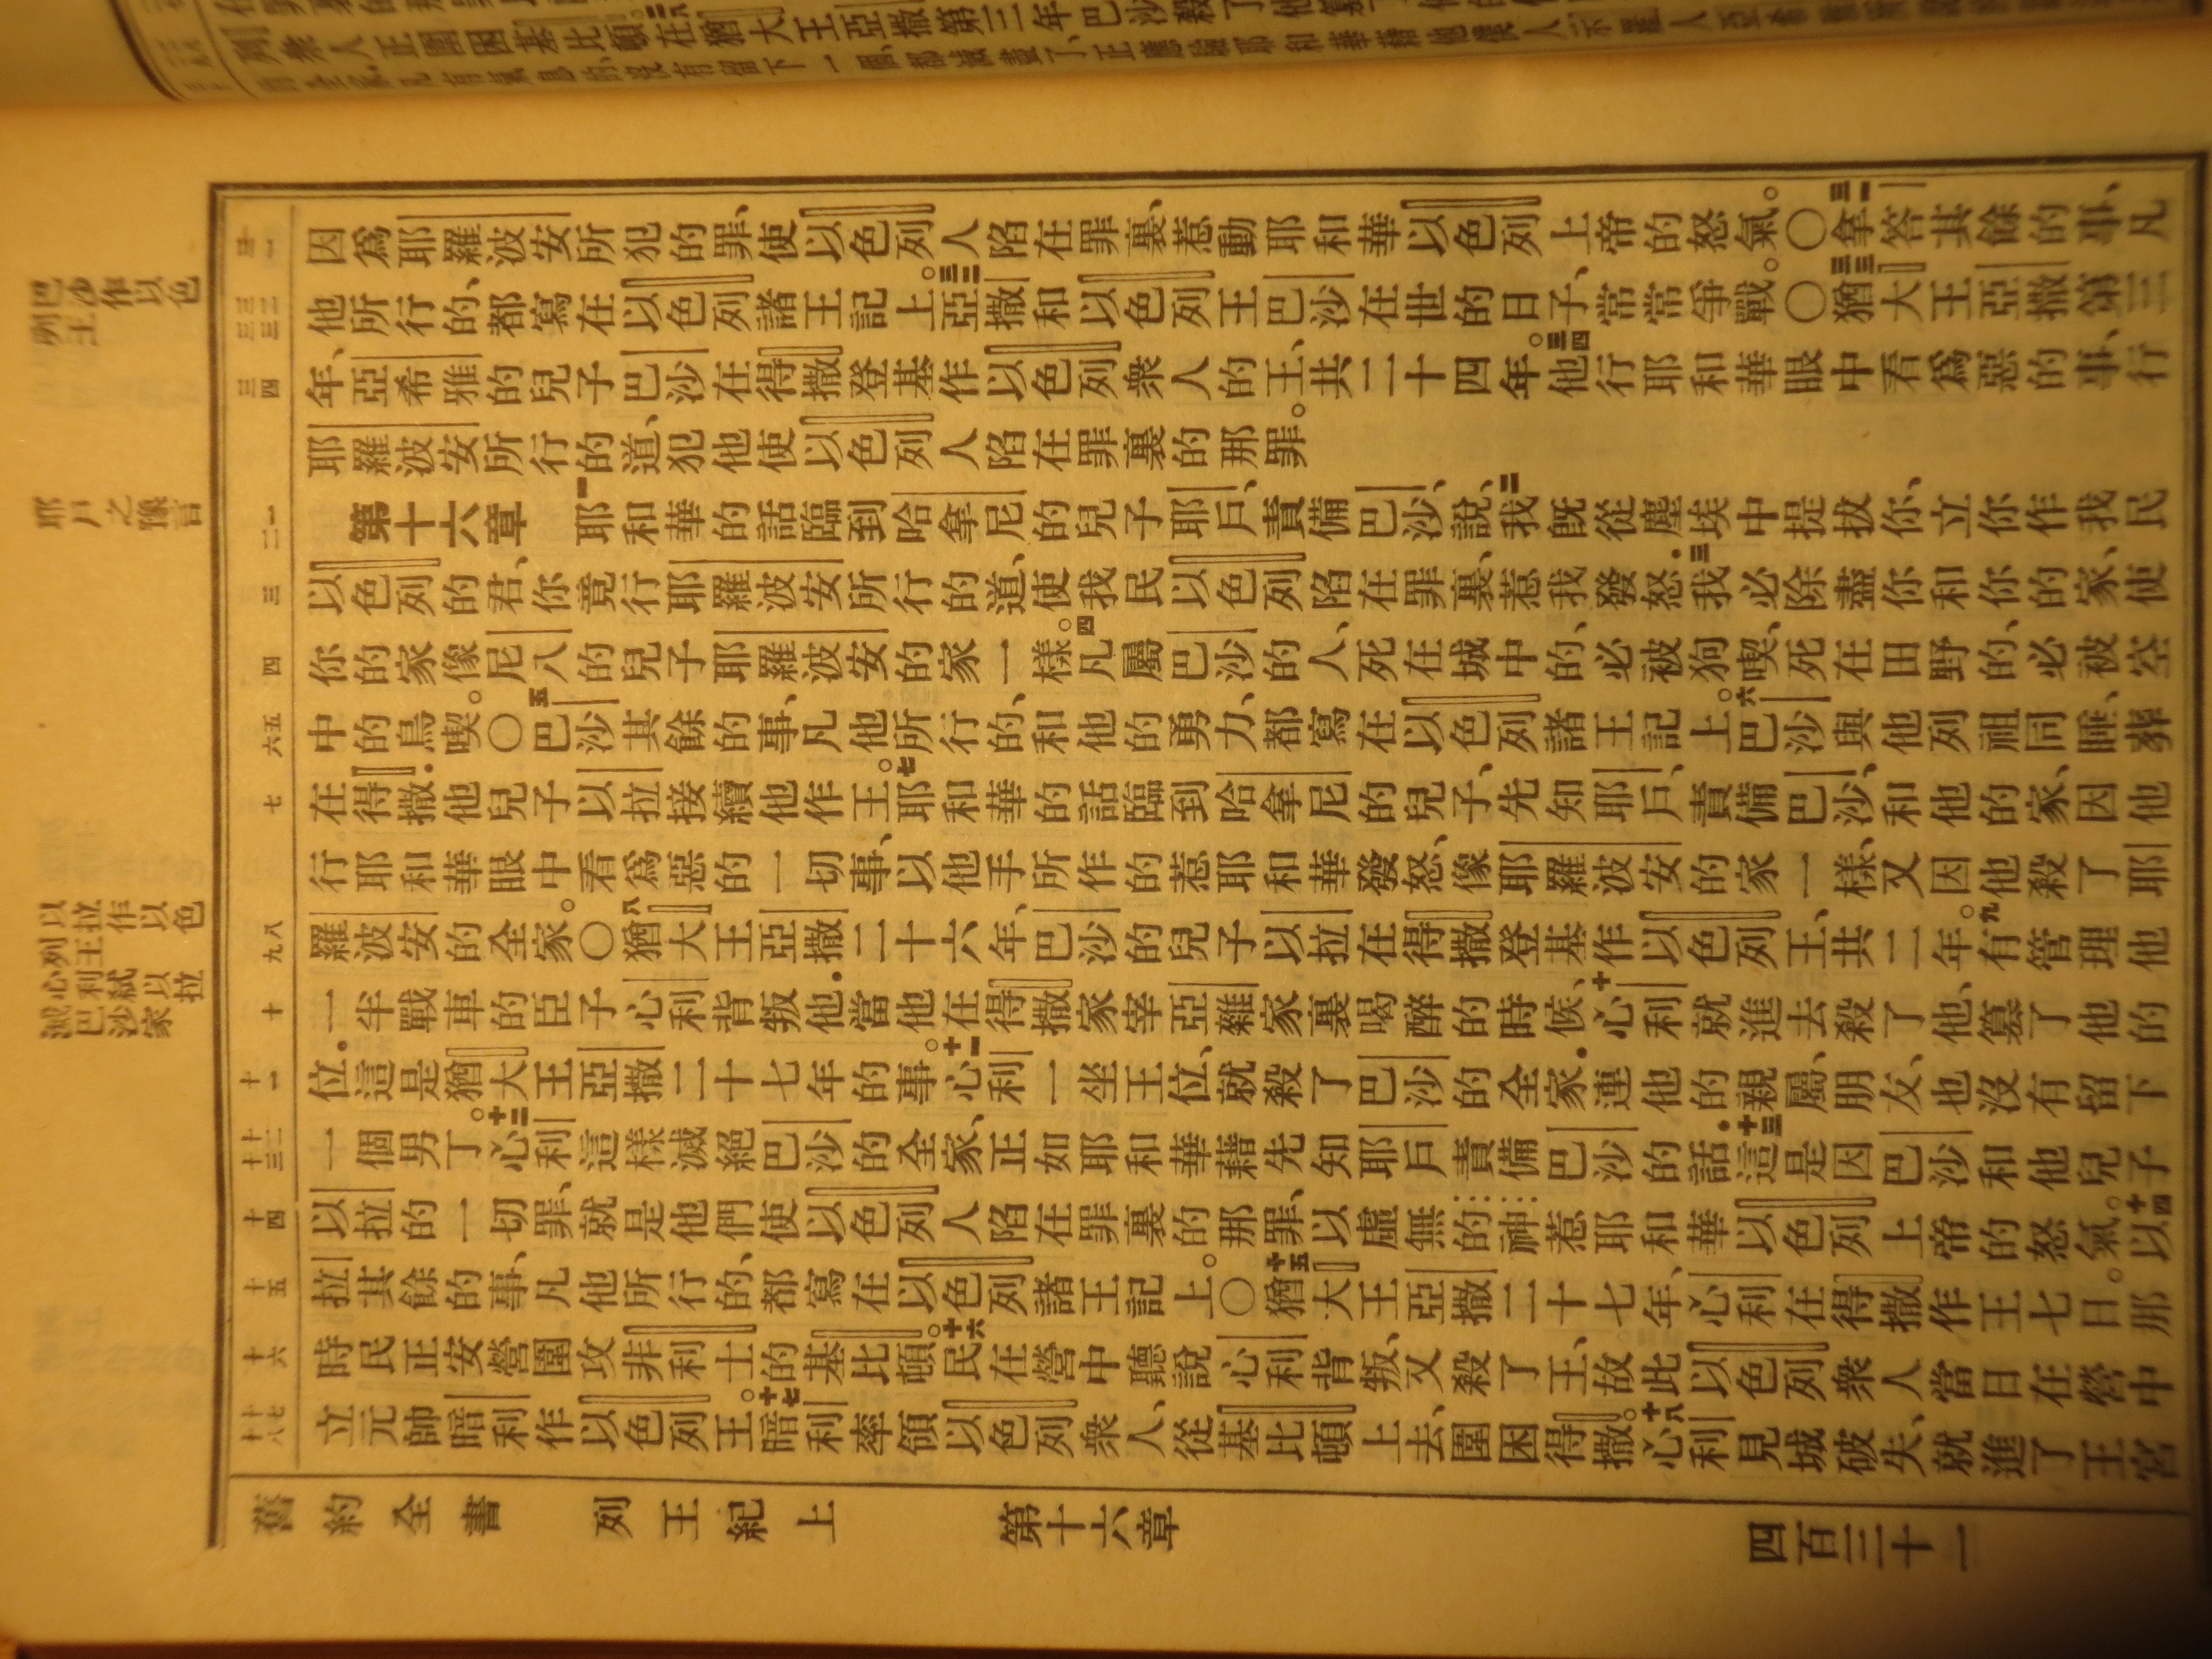 因爲耶羅波安所犯的罪、使以色列人陷在罪裏、惹動耶和華以色列上帝的怒氣。〇三一拿答其餘的事、凡
他所行的、都寫在以色列諸王記上。三二亞撒和以色列王巴沙在世的日子、常常爭戰。〇三三猶大王亞撒第三
年、亞希雅的兒子巴沙在得撒登基作以色列衆人的王、共二十四年。三四他行耶和華眼中看爲惡的事、行
耶羅波安所行的道、犯他使以色列人陷在罪裏的那罪。
第十六章 一耶和華的話臨到哈拿尼的兒子耶戶、責備巴沙、說、二我旣從塵埃中提拔你、立你作我民
以色列的君、你竟行耶羅波安所行的道、使我民以色列陷在罪裏、惹我發怒．三我必除盡你和你的家、使
你的家像尼八的兒子耶羅波安的家一樣。四凡屬巴沙的人、死在城中的、必被狗喫、死在田野的、必被空
中的鳥喫。〇五巴沙其餘的事、凡他所行的、和他的勇力、都寫在以色列諸王記上。六巴沙與他列祖同睡、葬
在得撒．他兒子以拉接續他作王。七耶和華的話臨到哈拿尼的兒子、先知耶戶、責備巴沙、和他的家、因他
行耶和華眼中看爲惡的一切事、以他手所作的惹耶和華發怒、像耶羅波安的家一樣、又因他殺了耶
羅波安的全家。〇八猶大王亞撒二十六年、巴沙的兒子以拉在得撒登基作以色列王、共二年。九有管理他
一半戰車的臣子心利背叛他．當他在得撒家宰亞雜家裏喝醉的時候、十心利就進去殺了他、篡了他的
位．這是猶大王亞撒二十七年的事。十一心利一坐王位、就殺了巴沙的全家．連他的親屬、朋友、也沒有留下
一個男丁。十二心利這樣滅絕巴沙的全家、正如耶和華藉先知耶戶責備巴沙的話．十三這是因巴沙和他兒子
以拉的一切罪、就是他們使以色列人陷在罪裏的那罪、以虛無的神惹耶和華以色列上帝的怒氣。十四以
拉其餘的事、凡他所行的、都寫在以色列諸王記上。〇十五猶大王亞撒二十七年、心利在得撒作王七日。那
時民正安營圍攻非利士的基比頓。十六民在營中聽說心利背叛、又殺了王、故此以色列衆人當日在營中
立元帥暗利作以色列王。十七暗利率領以色列衆人、從基比頓上去、圍困得撒。十八心利見城破失、就進了王宮
舊約全書 列王紀上 第十六章 四百三十一
巴沙作以色
列王
耶戶之豫言
以拉作以色
列王
心利弒以拉
滅巴沙家